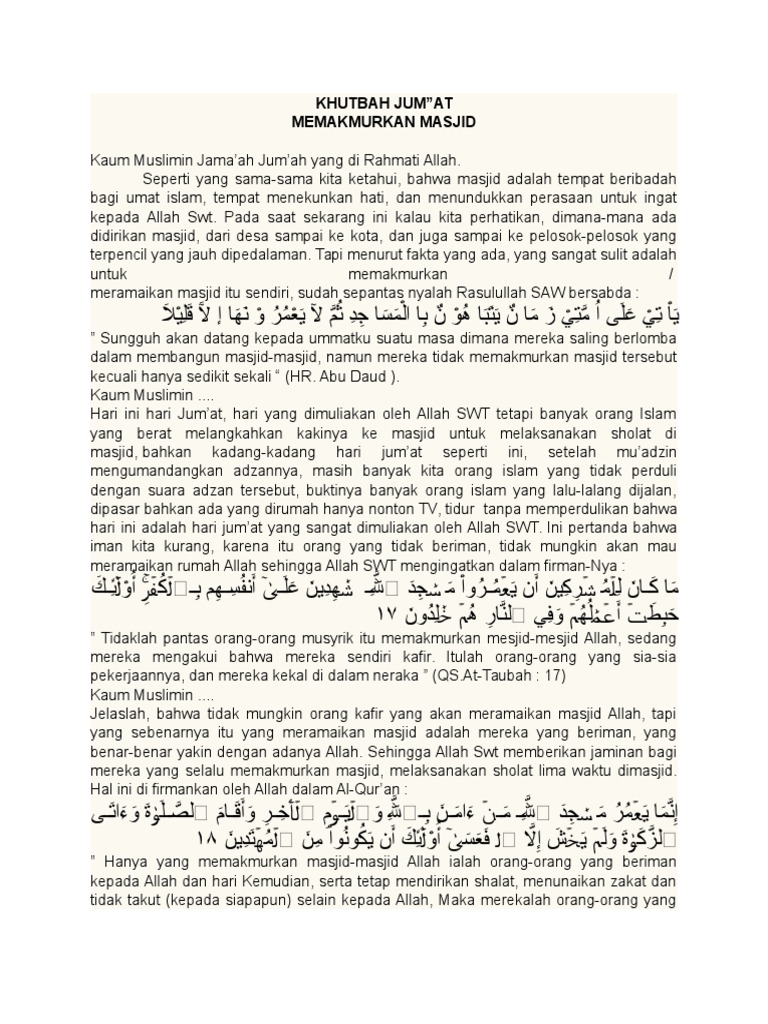 KHUTBAH JUM”AT
MEMAKMURKAN MASJID
Kaum Muslimin Jama’ah Jum’ah yang di Rahmati Allah.
Seperti yang sama-sama kita ketahui, bahwa masjid adalah tempat beribadah
bagi umat islam, tempat menekunkan hati, dan menundukkan perasaan untuk ingat
kepada Allah Swt. Pada saat sekarang ini kalau kita perhatikan, dimana-mana ada
didirikan masjid, dari desa sampai ke kota, dan juga sampai ke pelosok-pelosok yang
terpencil yang jauh dipedalaman. Tapi menurut fakta yang ada, yang sangat sulit adalah
untuk memakmurkan /
meramaikan masjid itu sendiri, sudah sepantas nyalah Rasulullah SAW bersabda :
يَأْ تِيْ عَلَى اُ مَّتِيْ زَ مَا نٌ يَتَبَا هُوْ نٌ بِا الْمَسَا جِدِ ثُمَّ لآ يَعْمُرُ وْ نَهَا إِ لاَّ قَلِيْلاَ
” Sungguh akan datang kepada ummatku suatu masa dimana mereka saling berlomba
dalam membangun masjid-masjid, namun mereka tidak memakmurkan masjid tersebut
kecuali hanya sedikit sekali “ (HR. Abu Daud ).
Kaum Muslimin ....
Hari ini hari Jum’at, hari yang dimuliakan oleh Allah SWT tetapi banyak orang Islam
yang berat melangkahkan kakinya ke masjid untuk melaksanakan sholat di
masjid, bahkan kadang-kadang hari jum’at seperti ini, setelah mu’adzin
mengumandangkan adzannya, masih banyak kita orang islam yang tidak perduli
dengan suara adzan tersebut, buktinya banyak orang islam yang lalu-lalang dijalan,
dipasar bahkan ada yang dirumah hanya nonton TV, tidur tanpa memperdulikan bahwa
hari ini adalah hari jum’at yang sangat dimuliakan oleh Allah SWT. Ini pertanda bahwa
iman kita kurang, karena itu orang yang tidak beriman, tidak mungkin akan mau
meramaikan rumah Allah sehingga Allah SWT mengingatkan dalam firman-Nya :
مَا كَانَ لِلۡمُشۡرِكِينَ أَن يَعۡمُرُواْ مَسَٰجِدَ ٱللَّهِ شَٰهِدِينَ عَلَىٰٓ أَنفُسِهِم بِٱلۡكُفۡرِۚ أُوْلَٰٓئِكَ
حَبِطَتۡ أَعۡمَٰلُهُمۡ وَفِي ٱلنَّارِ هُمۡ خَٰلِدُونَ ١٧
” Tidaklah pantas orang-orang musyrik itu memakmurkan mesjid-mesjid Allah, sedang
mereka mengakui bahwa mereka sendiri kafir. Itulah orang-orang yang sia-sia
pekerjaannya, dan mereka kekal di dalam neraka ” (QS.At-Taubah : 17)
Kaum Muslimin ....
Jelaslah, bahwa tidak mungkin orang kafir yang akan meramaikan masjid Allah, tapi
yang sebenarnya itu yang meramaikan masjid adalah mereka yang beriman, yang
benar-benar yakin dengan adanya Allah. Sehingga Allah Swt memberikan jaminan bagi
mereka yang selalu memakmurkan masjid, melaksanakan sholat lima waktu dimasjid.
Hal ini di firmankan oleh Allah dalam Al-Qur’an :
إِنَّمَا يَعۡمُرُ مَسَٰجِدَ ٱللَّهِ مَنۡ ءَامَنَ بِٱللَّهِ وَٱلۡيَوۡمِ ٱلۡأٓخِرِ وَأَقَامَ ٱلصَّلَوٰةَ وَءَاتَى
ٱلزَّكَوٰةَ وَلَمۡ يَخۡشَ إِلَّا ٱللَّهَۖ فَعَسَىٰٓ أُوْلَٰٓئِكَ أَن يَكُونُواْ مِنَ ٱلۡمُهۡتَدِينَ ١٨
” Hanya yang memakmurkan masjid-masjid Allah ialah orang-orang yang beriman
kepada Allah dan hari Kemudian, serta tetap mendirikan shalat, menunaikan zakat dan
tidak takut (kepada siapapun) selain kepada Allah, Maka merekalah orang-orang yang